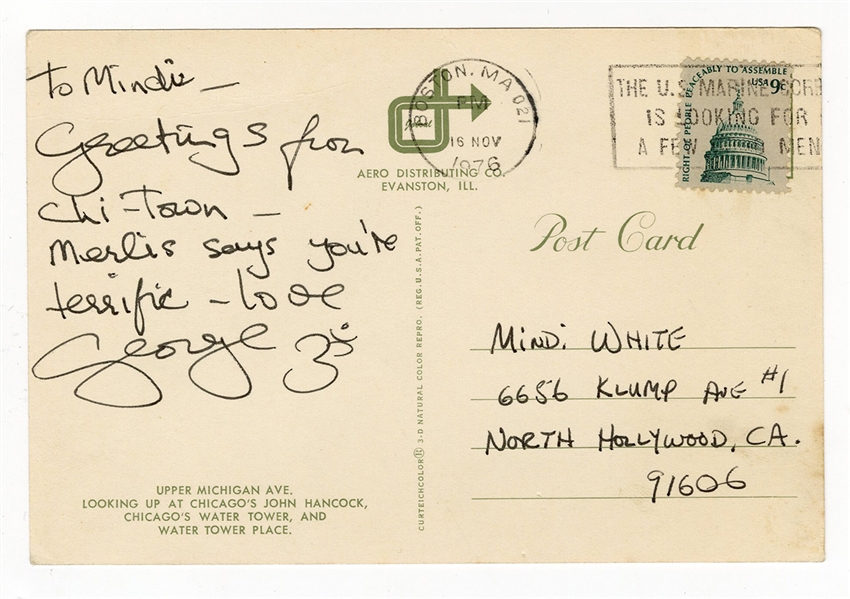 To Mindi –
Greetings from
Chi-Town –
Merlis says you're
terrific – love
George
AERO DISTRIBUTING CO.
EVANSTON, ILL.
BOSTON, MA 021
PM
16 NOV
1976
THE U.S. MARINE CORPS
IS LOOKING FOR
A FEW MEN
RIGHT OF PEOPLE PEACEABLY TO ASSEMBLE
USA 9c
Post Card
MINDI WHITE
6656 KLUMP AVE #1
NORTH HOLLYWOOD, CA.
91606
CURTEICHCOLOR® 3-D NATURAL COLOR REPRO. (REG. U.S.A. PAT. OFF.)
UPPER MICHIGAN AVE.
LOOKING UP AT CHICAGO'S JOHN HANCOCK,
CHICAGO'S WATER TOWER, AND
WATER TOWER PLACE.